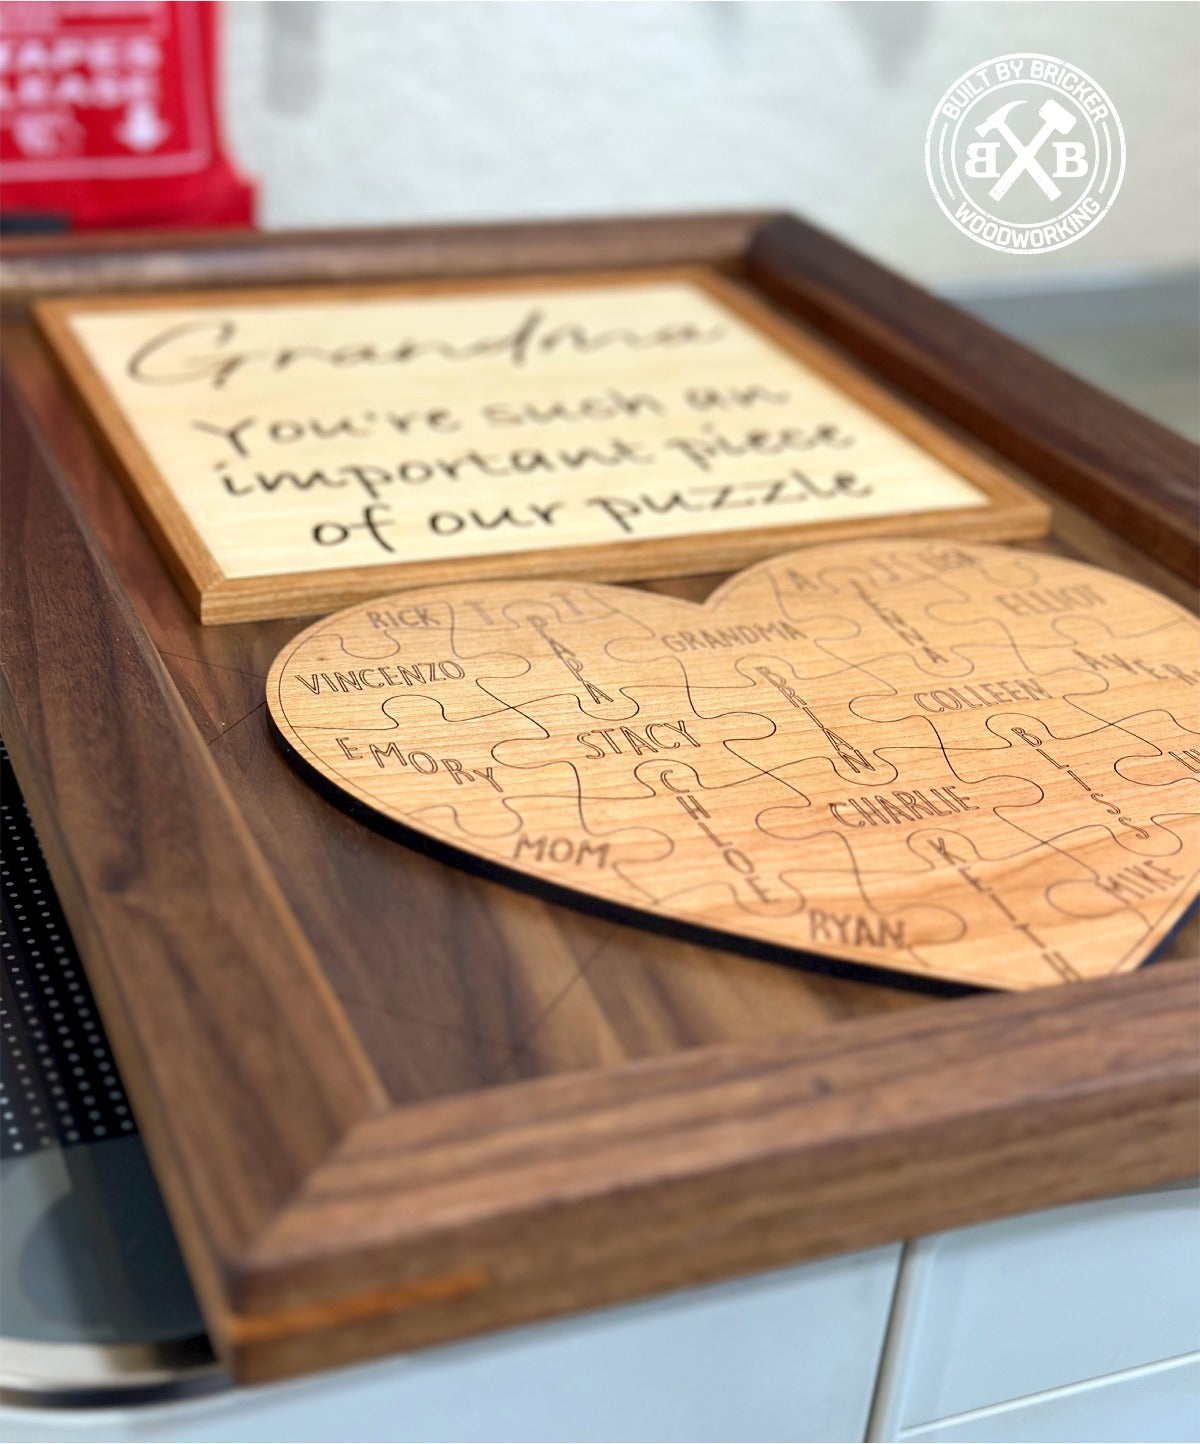 BUILT BY BRICKER
BB
WOODWORKING
Grandma
You're such an
important piece
of our puzzle
RICK
PAPA
GRANDMA
JENNA
ELLIOT
VINCENZO
BRIAN
COLLEEN
EMORY
STACY
BLISS
CHLOE
CHARLIE
MOM
KEITH
MIKE
RYAN